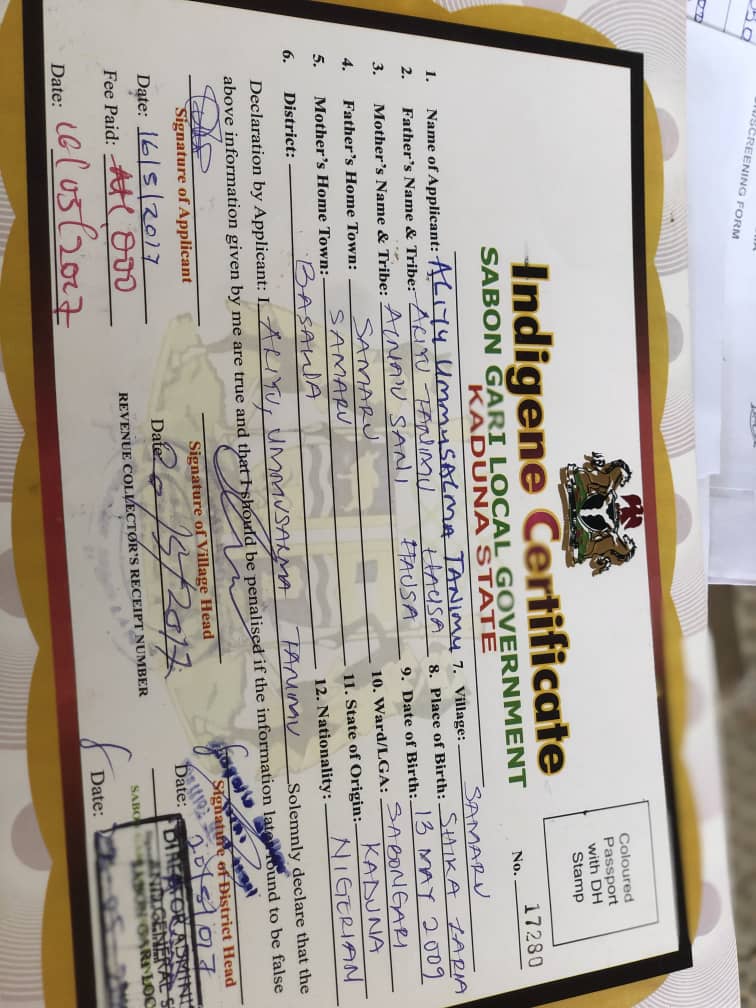 SCREENING FORM
Indigene Certificate
SABON GARI LOCAL GOVERNMENT
KADUNA STATE
Coloured
Passport
with DH
Stamp
No. 17280
1. Name of Applicant: ALIYU UMMUSALMA TANIMU
2. Father's Name & Tribe: ALIYU TANIMU HAUSA
3. Mother's Name & Tribe: AINAU SANI HAUSA
4. Father's Home Town: SAMARU
5. Mother's Home Town: SAMARU
6. District: BASAWA
7. Village: SAMARU
8. Place of Birth: SHIKA ZARIA
9. Date of Birth: 13 MAY 2009
10. Ward/LGA: SABONGARI
11. State of Origin: KADUNA
12. Nationality: NIGERIAN
Declaration by Applicant: I, ALIYU, UMMUSALMA TANIMU Solemnly declare that the
above information given by me are true and that I should be penalised if the information later found to be false
Signature of Applicant
Date: 16/5/2017
Signature of Village Head
Date:
Signature of District Head
Date:
Fee Paid:
REVENUE COLLECTOR'S RECEIPT NUMBER
Date: 16/05/2017
Date: